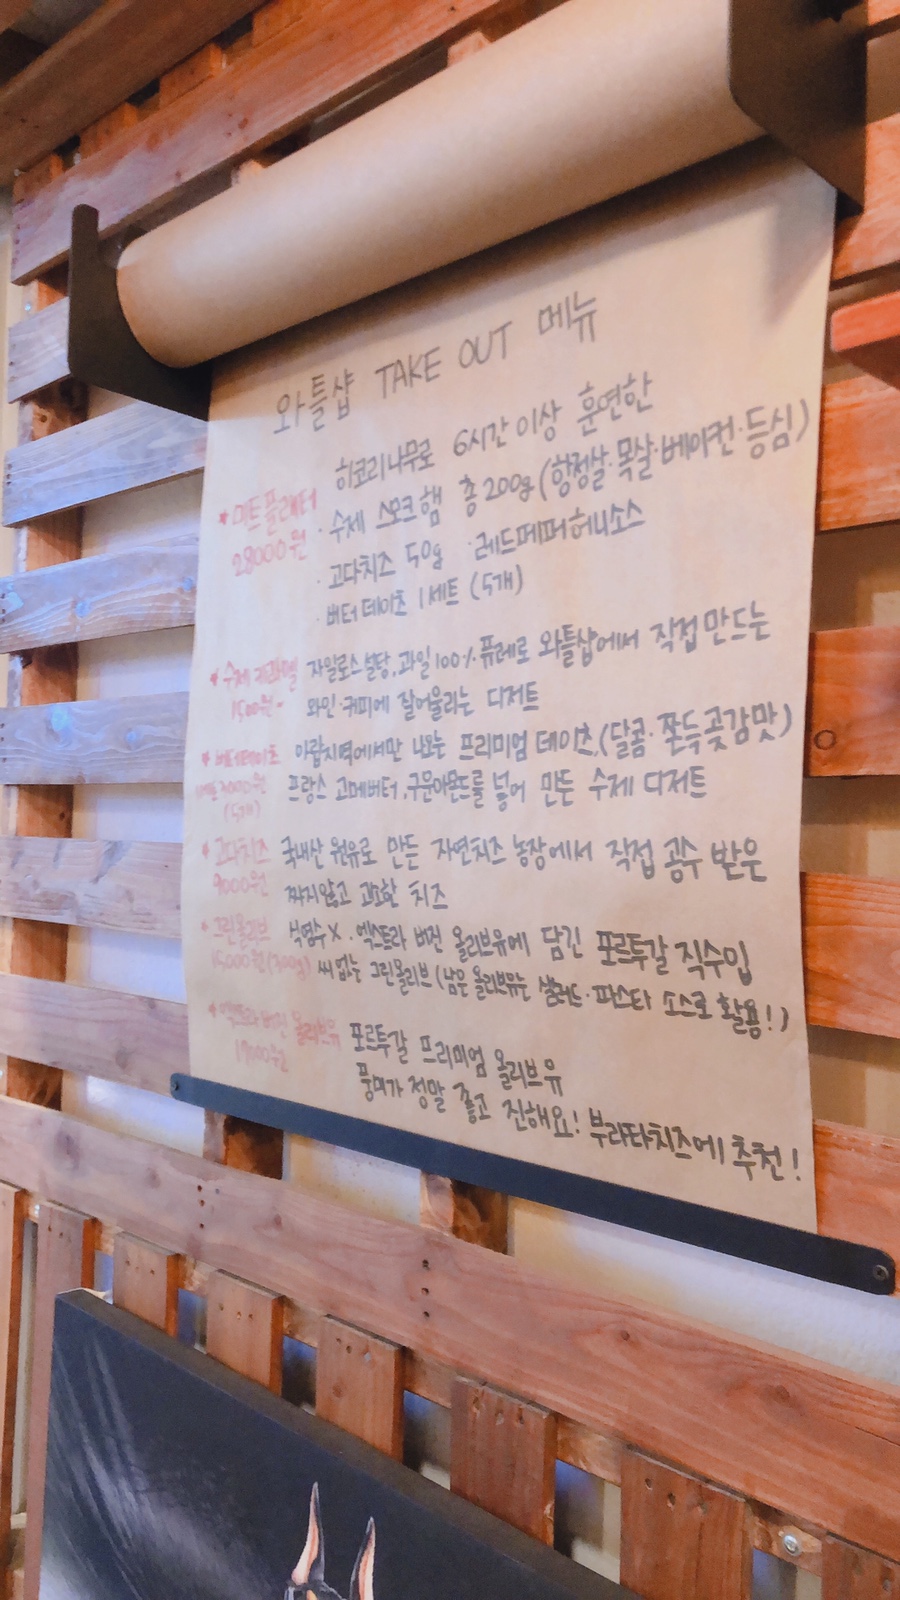 와틀샵 TAKE OUT 메뉴
★미트플래터
28000원
히코리나무로 6시간 이상 훈연한
· 수제 스모크햄 총 200g (항정살·목살·베이컨·등심)
· 고다치즈 50g · 레드페퍼허니소스
· 버터데이츠 1세트 (5개)
★수제 캬라멜
1500원-
자일로스 설탕, 과일100% 퓨레로 와틀샵에서 직접 만드는
와인·커피에 잘어울리는 디저트
★버터데이츠
1세트 7000원
(5개)
아랍지역에서만 나오는 프리미엄 데이츠,(달콤·쫀득곶감맛)
프랑스 고메버터, 구운아몬드를 넣어 만든 수제 디저트
★고다치즈
9000원
국내산 원유로 만든 자연치즈 농장에서 직접 공수 받은
짜지않고 고소한 치즈
★그린올리브
15000원(300g)
식염수X. 엑스트라 버진 올리브유에 담긴 포르투갈 직수입
씨없는 그린올리브 (남은 올리브유는 샐러드·파스타 소스로 활용!)
★엑스트라버진 올리브유
19000원
포르투갈 프리미엄 올리브유
풍미가 정말 좋고 진해요! 부라타치즈에 추천!